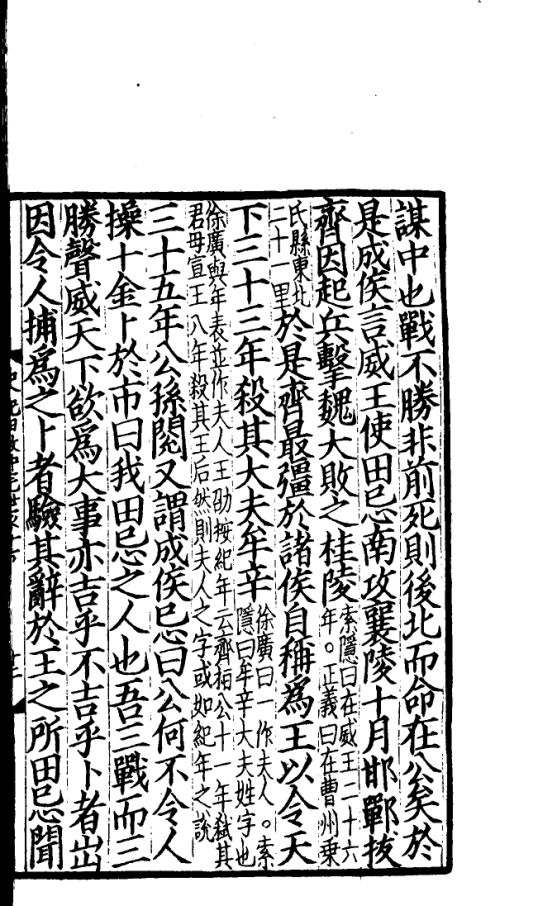 謀中也戰不勝非前死則後北而命在公矣於
是成侯言威王使田忌南攻襄陵十月邯鄲拔
齊因起兵擊魏大敗之桂陵索隱曰在威王二十六年。正義曰在曹州乗
氏縣東北二十一里於是齊最彊於諸侯自稱爲王以令天
下三十三年殺其大夫牟辛徐廣曰一作夫人。索隱曰牟辛大夫姓字也
徐廣與年表並作夫人王劭按紀年云齊桓公十一年弒其君母宣王八年殺其王后然則夫人之字或如紀年之說
三十五年公孫閱又謂成侯忌曰公何不令人
操十金卜於市曰我田忌之人也吾三戰而三
勝聲威天下欲爲大事亦吉乎不吉乎卜者出
因令人捕爲之卜者驗其辭於王之所田忌聞